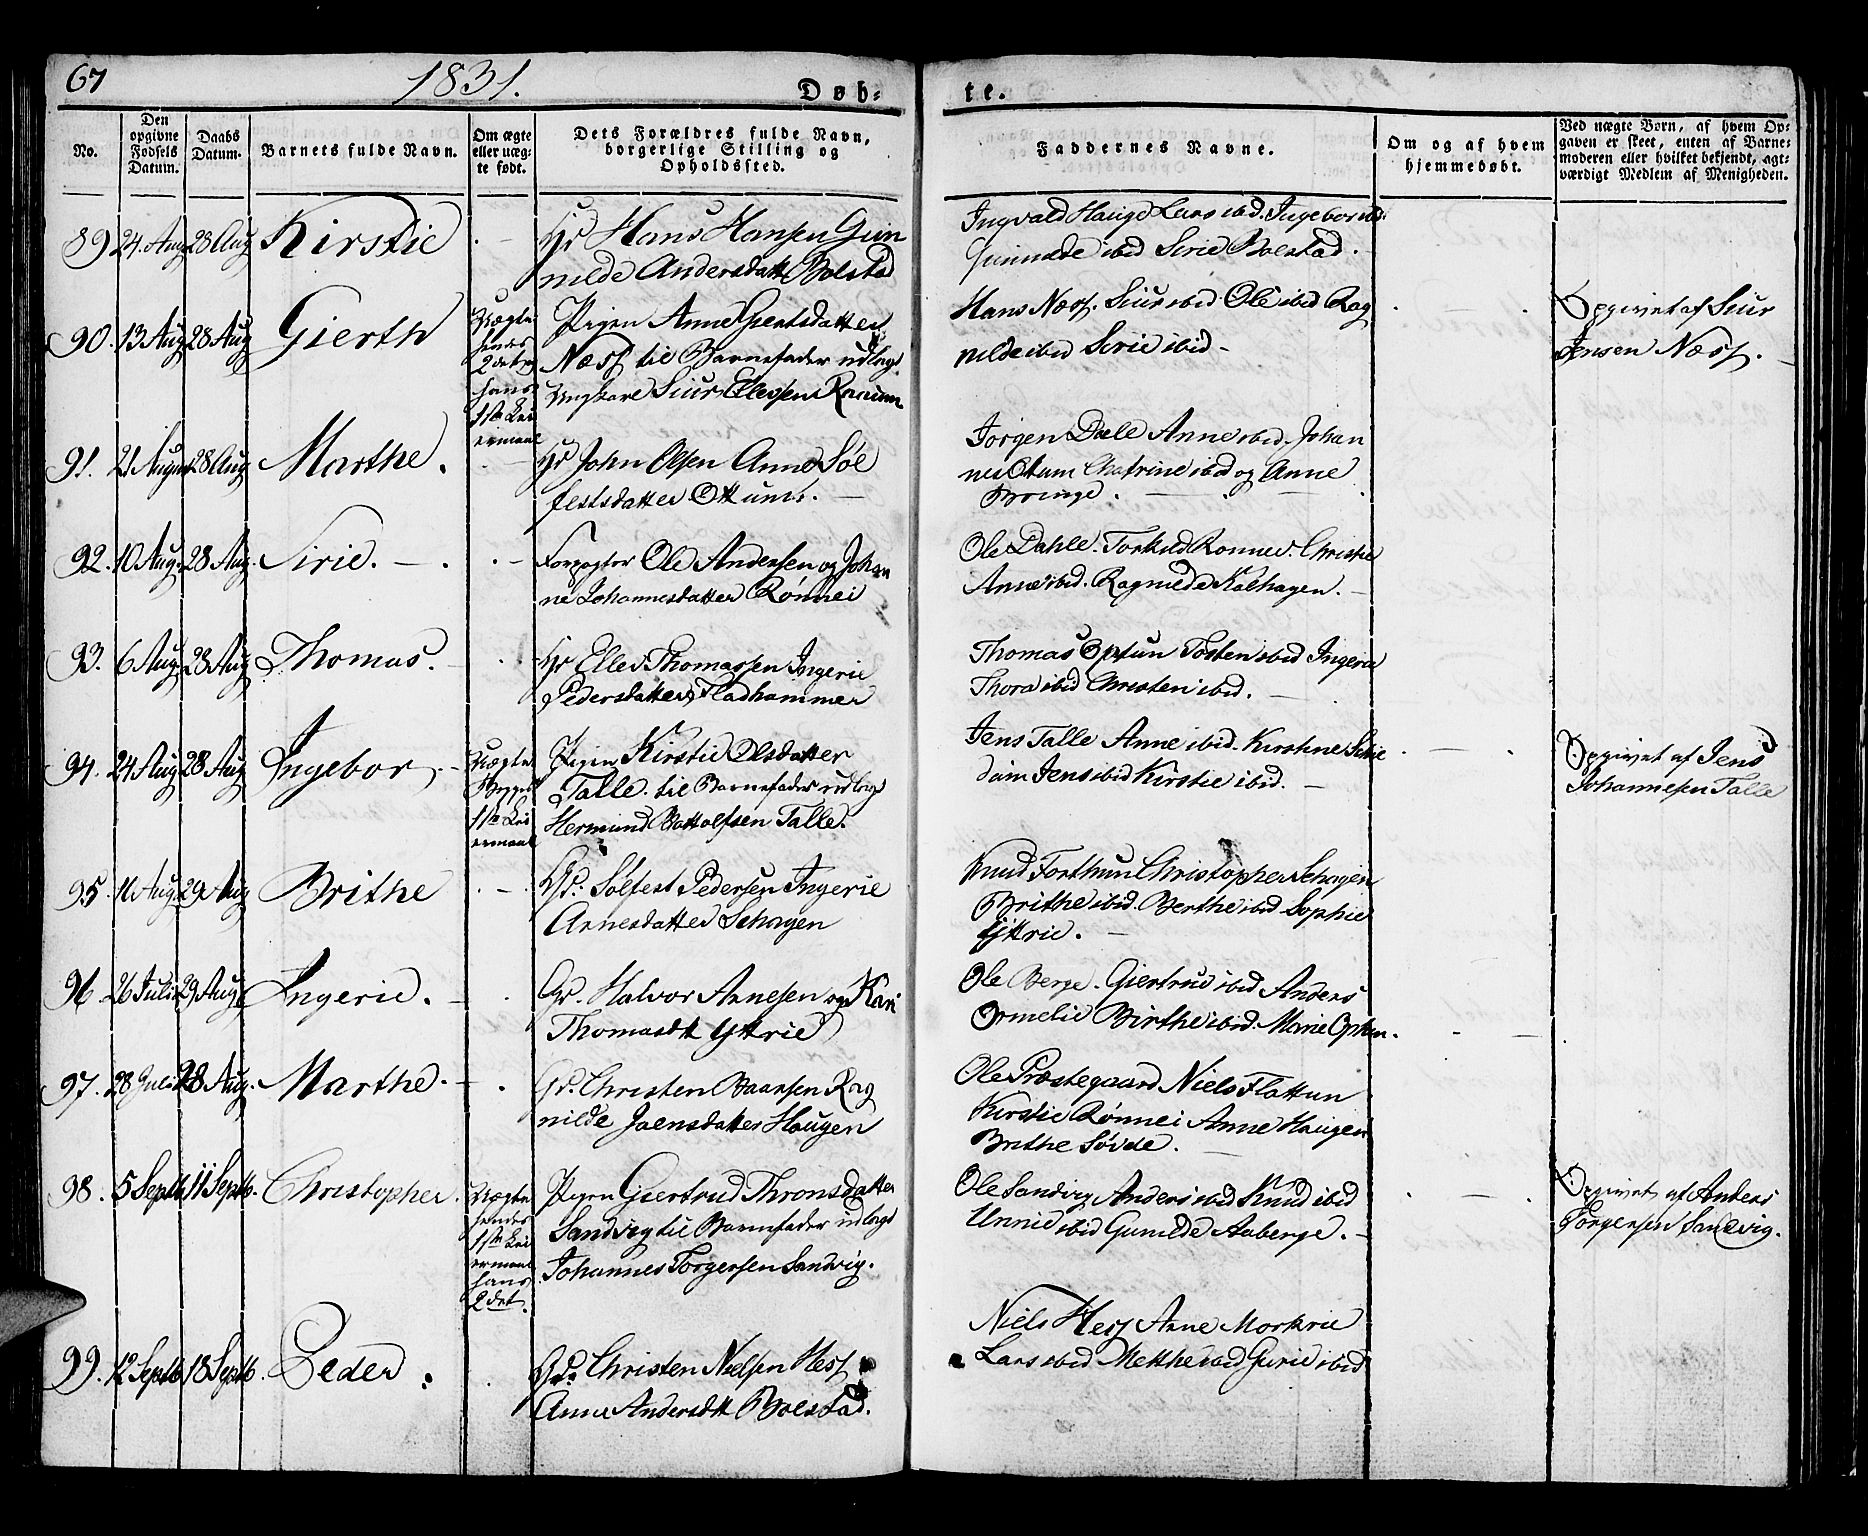 67 1831. Døb- te.
No.
Den opgivne Fødsels Datum.
Daabs Datum.
Barnets fulde Navn.
Om ægte eller uægte født.
Dets Forældres fulde Navn, borgerlige Stilling og Opholdssted.
Faddernes Navne.
Om og af hvem hjemmedøbt.
Ved uægte Børn, af hvem Opgaven er skeet, enten af Barnemoderen eller hvilket bekjendt, agtværdigt Medlem af Menigheden.
89 24 Aug 28 Aug Kirstie
Hans Hansen Gun
nilde Andersdatt Bolstad
Ingvald Hauge Lars ibd. Ingebor ibd.
Gunnilde ibid Sirie Bolstad.
90. 13 Aug 28 Aug Gierth
Uægte
hendes
2det
hans
1ste Lei
ermaal
Pigen Anne Giertsdatter
Næss til Barnefader udlagt
Ungkarl Siur Ellessen
Hans Næss. Siur ibid Ole ibid Rag
nilde ibid Sirie ibid
Opgivet af Siur
Jensen Næss.
91. 21 August 28 Aug Marthe.
John Olsen Anne Søl
festsdatter Ottum.
Jorgen Dale Anne ibid. Johan
nes Otum Chatrine ibid og Anne
Bringe.
92. 10 Aug. 28 Aug. Sirie.
Forpagter Ole Andersen og Johan
ne Johannesdatter Rønnei
Ole Dahle. Torkild Ronnei. Christie
Anne ibid. Ragnilde Kalhagen.
93. 6 Aug. 28 Aug Thomas.
Ellev Thomassen Ingerie
Pedersdatter Fladhammer
Thomas Optun Tosten ibid Ingerie
Thora ibid Christen ibid.
94. 24 Aug 28 Aug Ingebor.
Uægte
1ste Lei
ermaal
Pigen Kirstie Olsdatter
Talle. til Barnefader udlagt
Hermund Bottolfsen Talle.
Jens Talle Anne ibid. Kirstine
Jens ibid Kirstie ibid.
Opgivet af Jens
Johannesen Talle
95. 11 Aug. 29 Aug Brithe
Gr. Sølfest Pedersen Ingerie
Arnesdatter Schagen
Knud Forthun Christopher Schagen
Brithe ibid. Berthe ibid Sophie
Yttrie.
96 26 Juli 29 Aug Ingerie.
Gr. Halvor Arnesen og Kari
Thomasdtt Yttrie
Ole Berge. Giertrud ibid Anders
Ormelie Birthe ibid. Marie
97. 28 Juli 28 Aug. Marthe.
Gr. Christen Baarsen Rag
nilde Joensdatter Haugen
Ole Præstegaard Niels Flattun
Kirstie Rønnei Anne Haugen
Brithe Søvde.
98. 5 Septb 11 Septb. Christopher.
Uægte
hendes
1ste Lei
ermaal
hans
2det.
Pigen Giertrud Thronsdatter
Sandvig til Barnefader udlagt
Johannes Torgersen Sandvig.
Ole Sandvig Anders ibid Knud ibid
Unnie ibid Gunilde Aaberge.
Opgivet af Anders
Torgersen Sandvig.
99. 12 Septb 18 Septb. Peder.
Gr. Christen Nielsen Hess
Anne Andersdtt Bolstad.
Niels Hess Anne Morkrie
Lars ibid Metthe ibid Gurie ibid